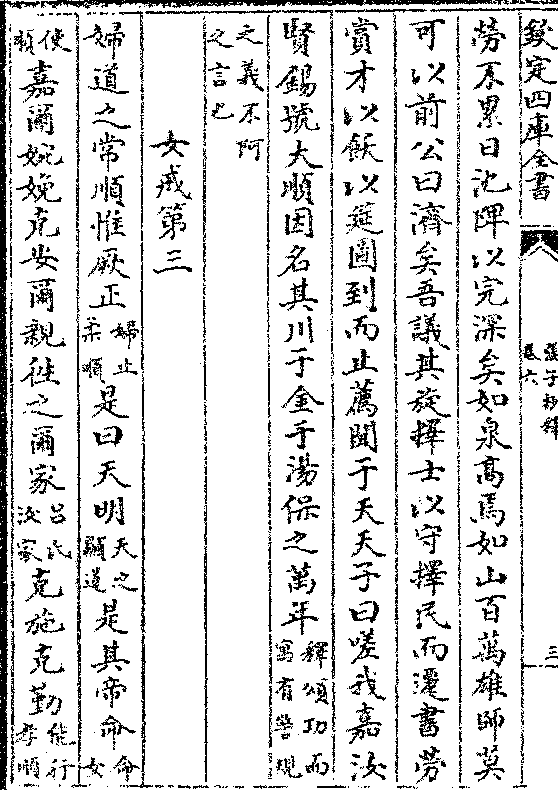 欽定四庫全書
張子抄釋
卷六
三
勞不累日池陴以完深矣如泉高焉如山百萬雄師莫
可以前公曰濟矣吾議其旋擇士以守擇民而遷書勞
賞才以飫以筵圖到而止薦聞于天天子曰嗟我嘉汝
賢錫號大順因名其川于金于湯保之萬年釋頌功而寓有警規
之義不阿之言也
女戒第三
婦道之常順惟厥正婦止柔順是曰天明天之顯道是其帝命命女
使順嘉爾婉娩克安爾親徃之爾家呂氏汝家克施克勤能行孝順